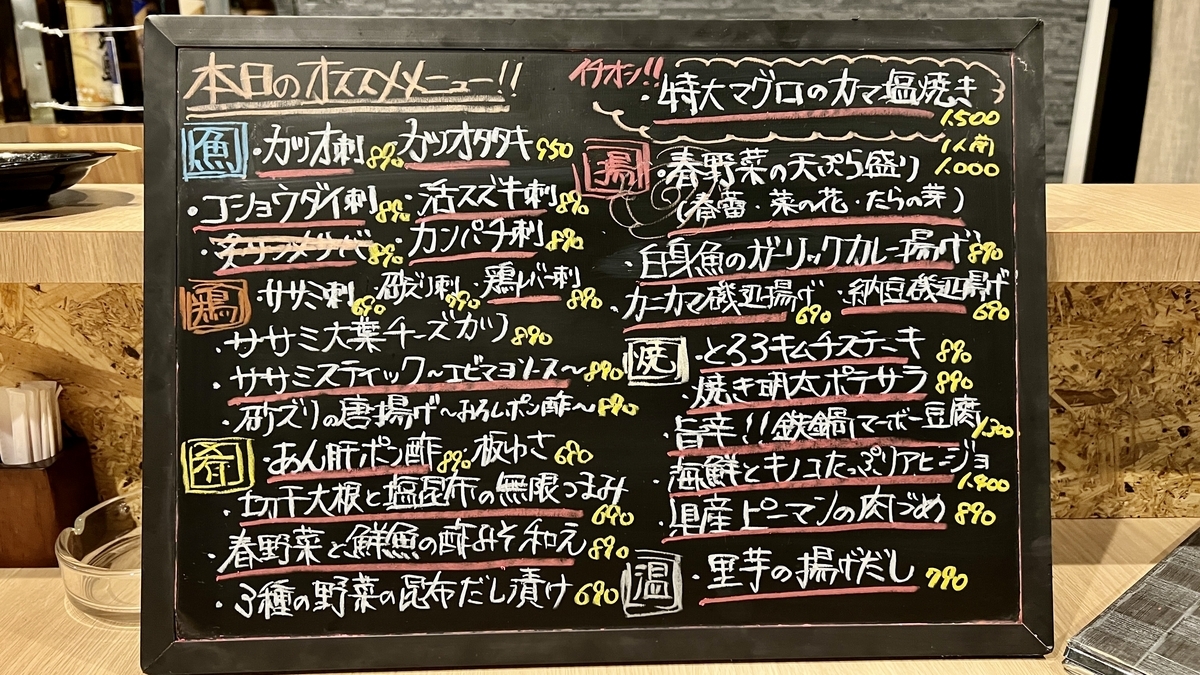 本日のオススメメニュー!!
魚
・カツオ刺 890 カツオタタキ 950
・コショウダイ刺 890 ・活スズキ刺 890
890 ・カンパチ刺 890
鶏
・ササミ刺 690 ・砂ズリ刺 790 ・鶏レバー刺 890
・ササミ大葉チーズカツ 890
・ササミスティック〜エビマヨソース〜 890
・砂ズリの唐揚げ〜おろしポン酢〜 890
肴
・あん肝ポン酢 890 ・板わさ 680
・切干大根と塩昆布の無限つまみ 690
・春野菜と鮮魚の酢みそ和え 890
・3種の野菜の昆布だし漬け 690
イチオシ!!
・特大マグロのカマ塩焼き 1.500
揚
・春野菜の天ぷら盛り 1人前 1.000
(春蕾・菜の花・たらの芽)
・白身魚のガーリックカレー揚げ 890
・カニカマ磯辺揚げ 690 ・納豆磯辺揚げ 690
焼
・とろろキムチステーキ 890
・焼き明太ポテサラ 890
・旨辛!!鉄鍋マーボー豆腐 1.300
・海鮮とキノコたっぷりアヒージョ 1.400
・県産ピーマンの肉づめ 890
温
・里芋の揚げだし 790